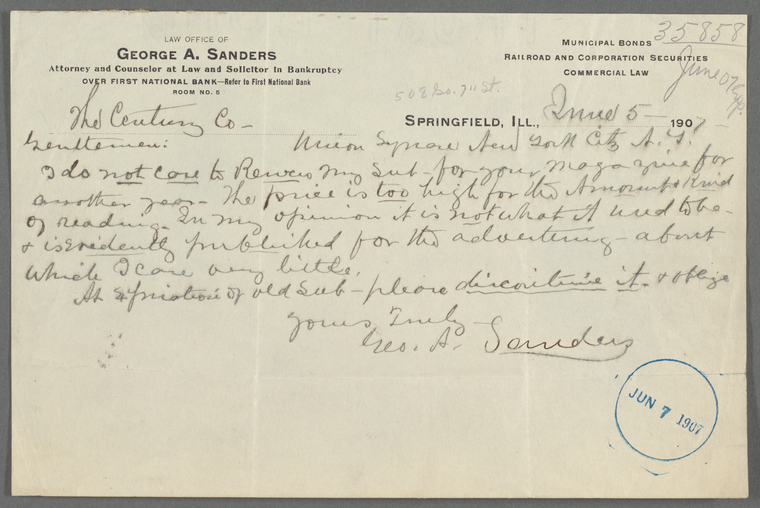 LAW OFFICE OF
GEORGE A. SANDERS
Attorney and Counselor at Law and Solicitor in Bankruptcy
OVER FIRST NATIONAL BANK—Refer to First National Bank
ROOM NO. 5
MUNICIPAL BONDS
RAILROAD AND CORPORATION SECURITIES
COMMERCIAL LAW
35858
June 07
508 So. 7" St.
SPRINGFIELD, ILL., June 5— 1907
The Century Co—
Union Square New York City N.Y.
Gentlemen:
I do not care to Renew my Sub— for your Magazine for
another year— The price is too high for the Amount & Kind
of reading. In my opinion it is not what it used to be—
& is evidently published for the advertising— about
which I care very little.
At Expiration of old Sub— please discontinue it & oblige
Yours Truly—
Geo. A. Sanders
JUN 7 1907